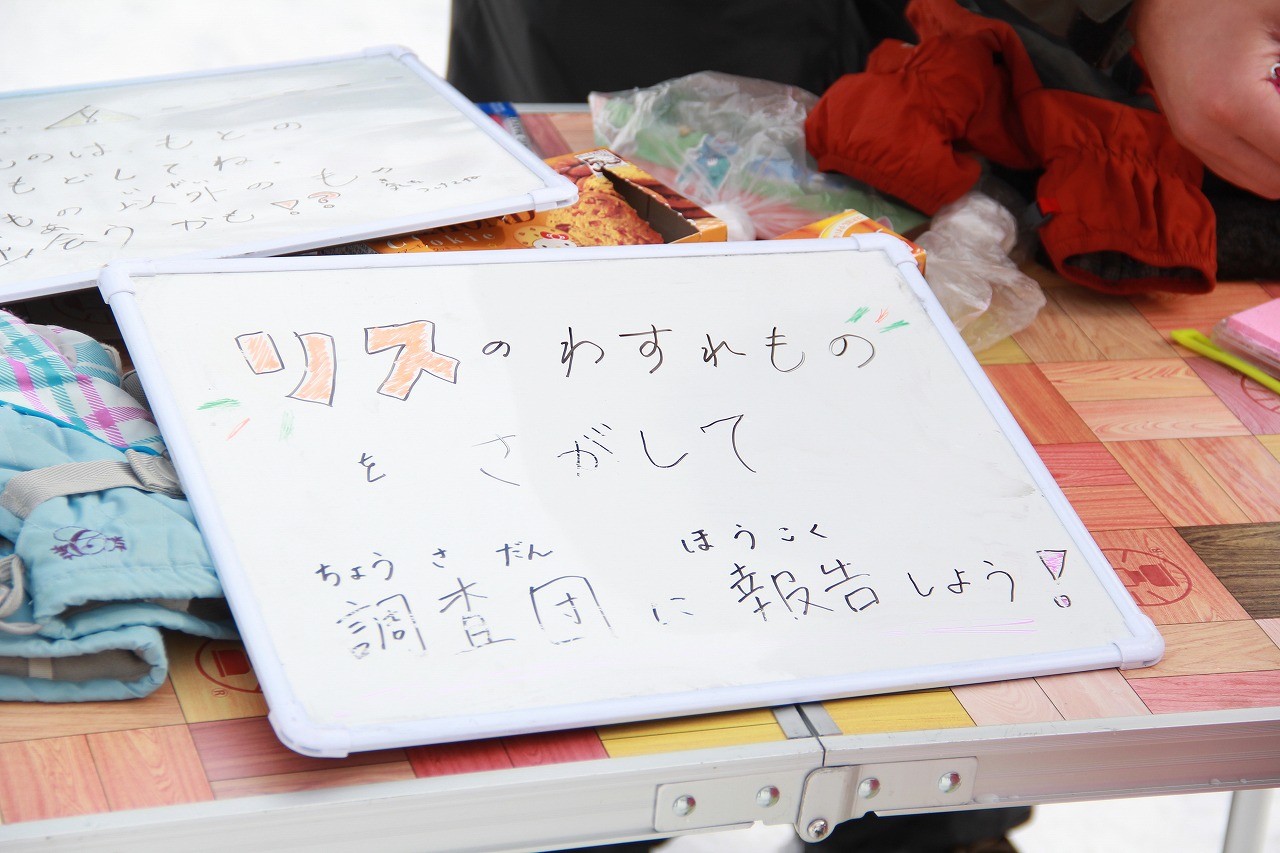 ものは もとの
もどしてね.
もの以外のもの
会うかも!?
Cookie
リスのわすれもの
をさがして
ちょうさだん ほうこく
調査団に報告しよう!